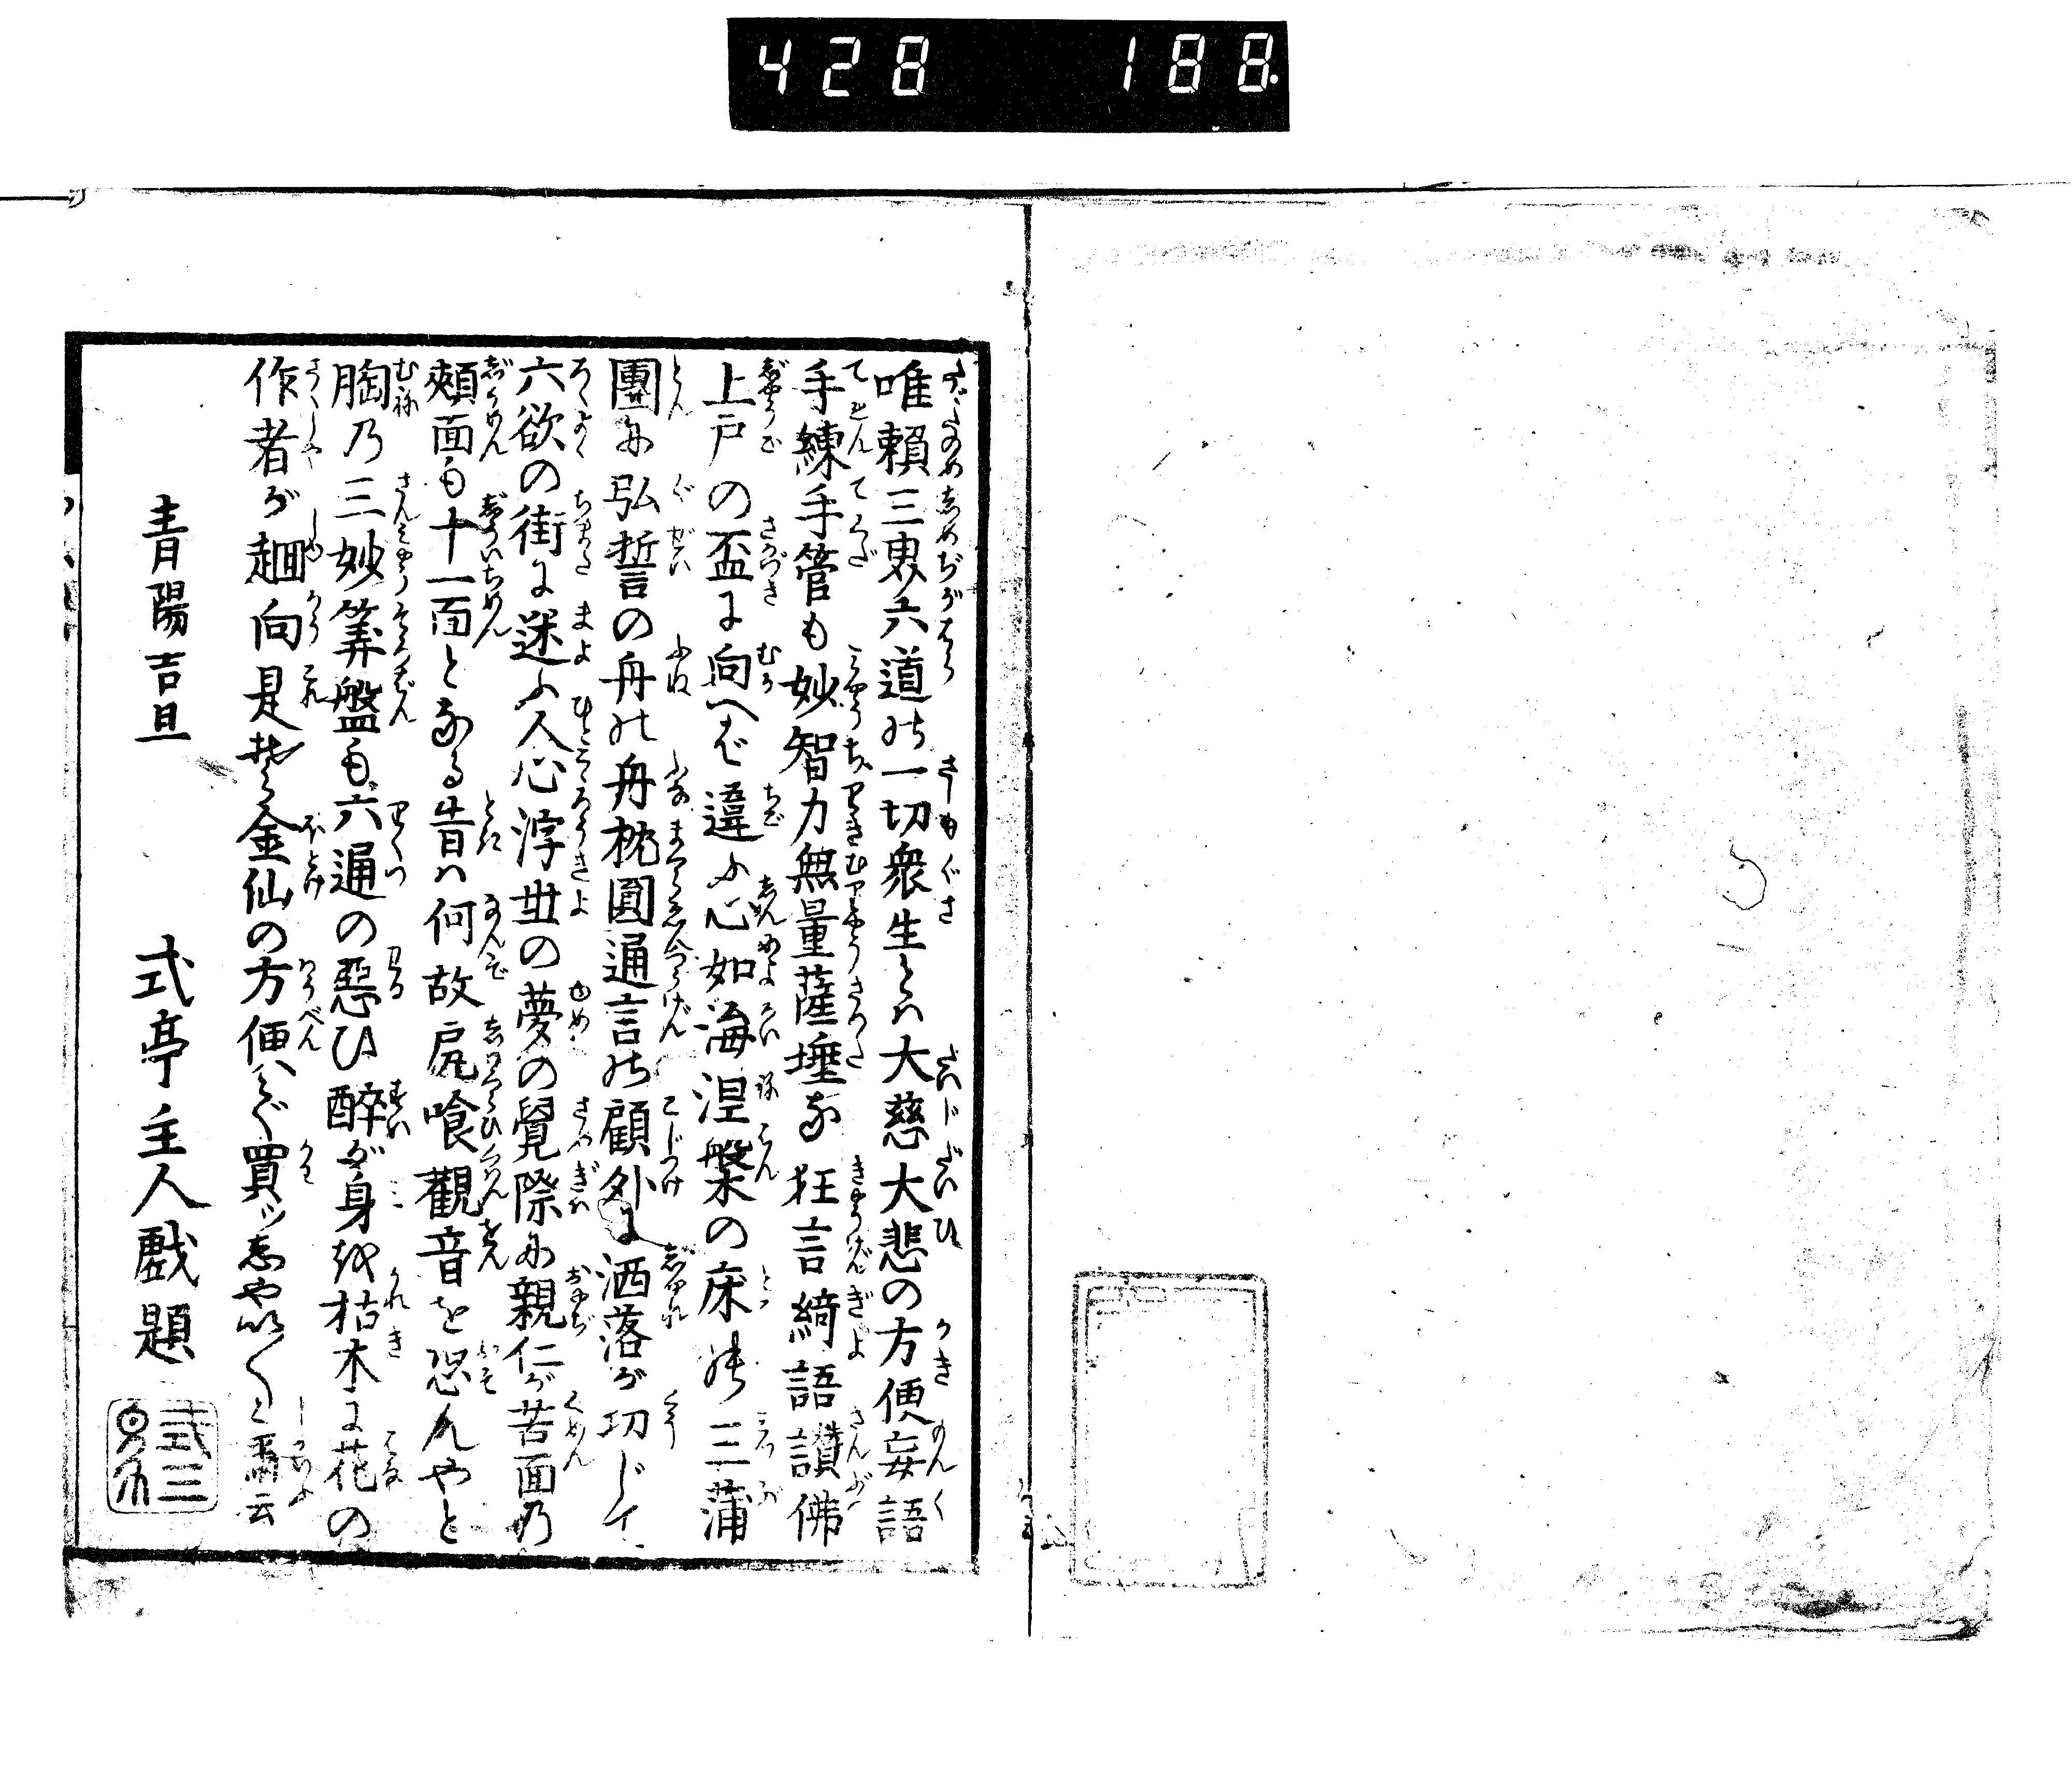 428 188.
唯賴三惠六道の一切衆生とハ大慈大悲の方便妄語
手練手管も妙智力無量薩埵な狂言綺語讃佛
上戸の盃に向へば違ふ心如海涅槃の床の三蒲
團に弘誓の舟の舟枕圓通言の顧外に洒落が切じて
六欲の街に迷ふ人心浮世の夢の覺際に親仁が苦面の
頰面も十一面となる昔ハ何故尻喰觀音を恐んやと
胸の三妙筭盤も六通の惡ひ醉が身を枯木に花の
作者が趣向是ぞ金仙の方便買ッしやい〳〵と爾云
青陽吉旦
式亭主人戲題
式三